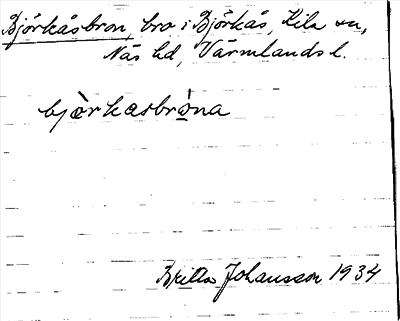 Björkåsbron, bro i Björkås, Kila sn,
Näs hd, Värmlands l.
bjòrkasbròna
Britta Johansson 1934